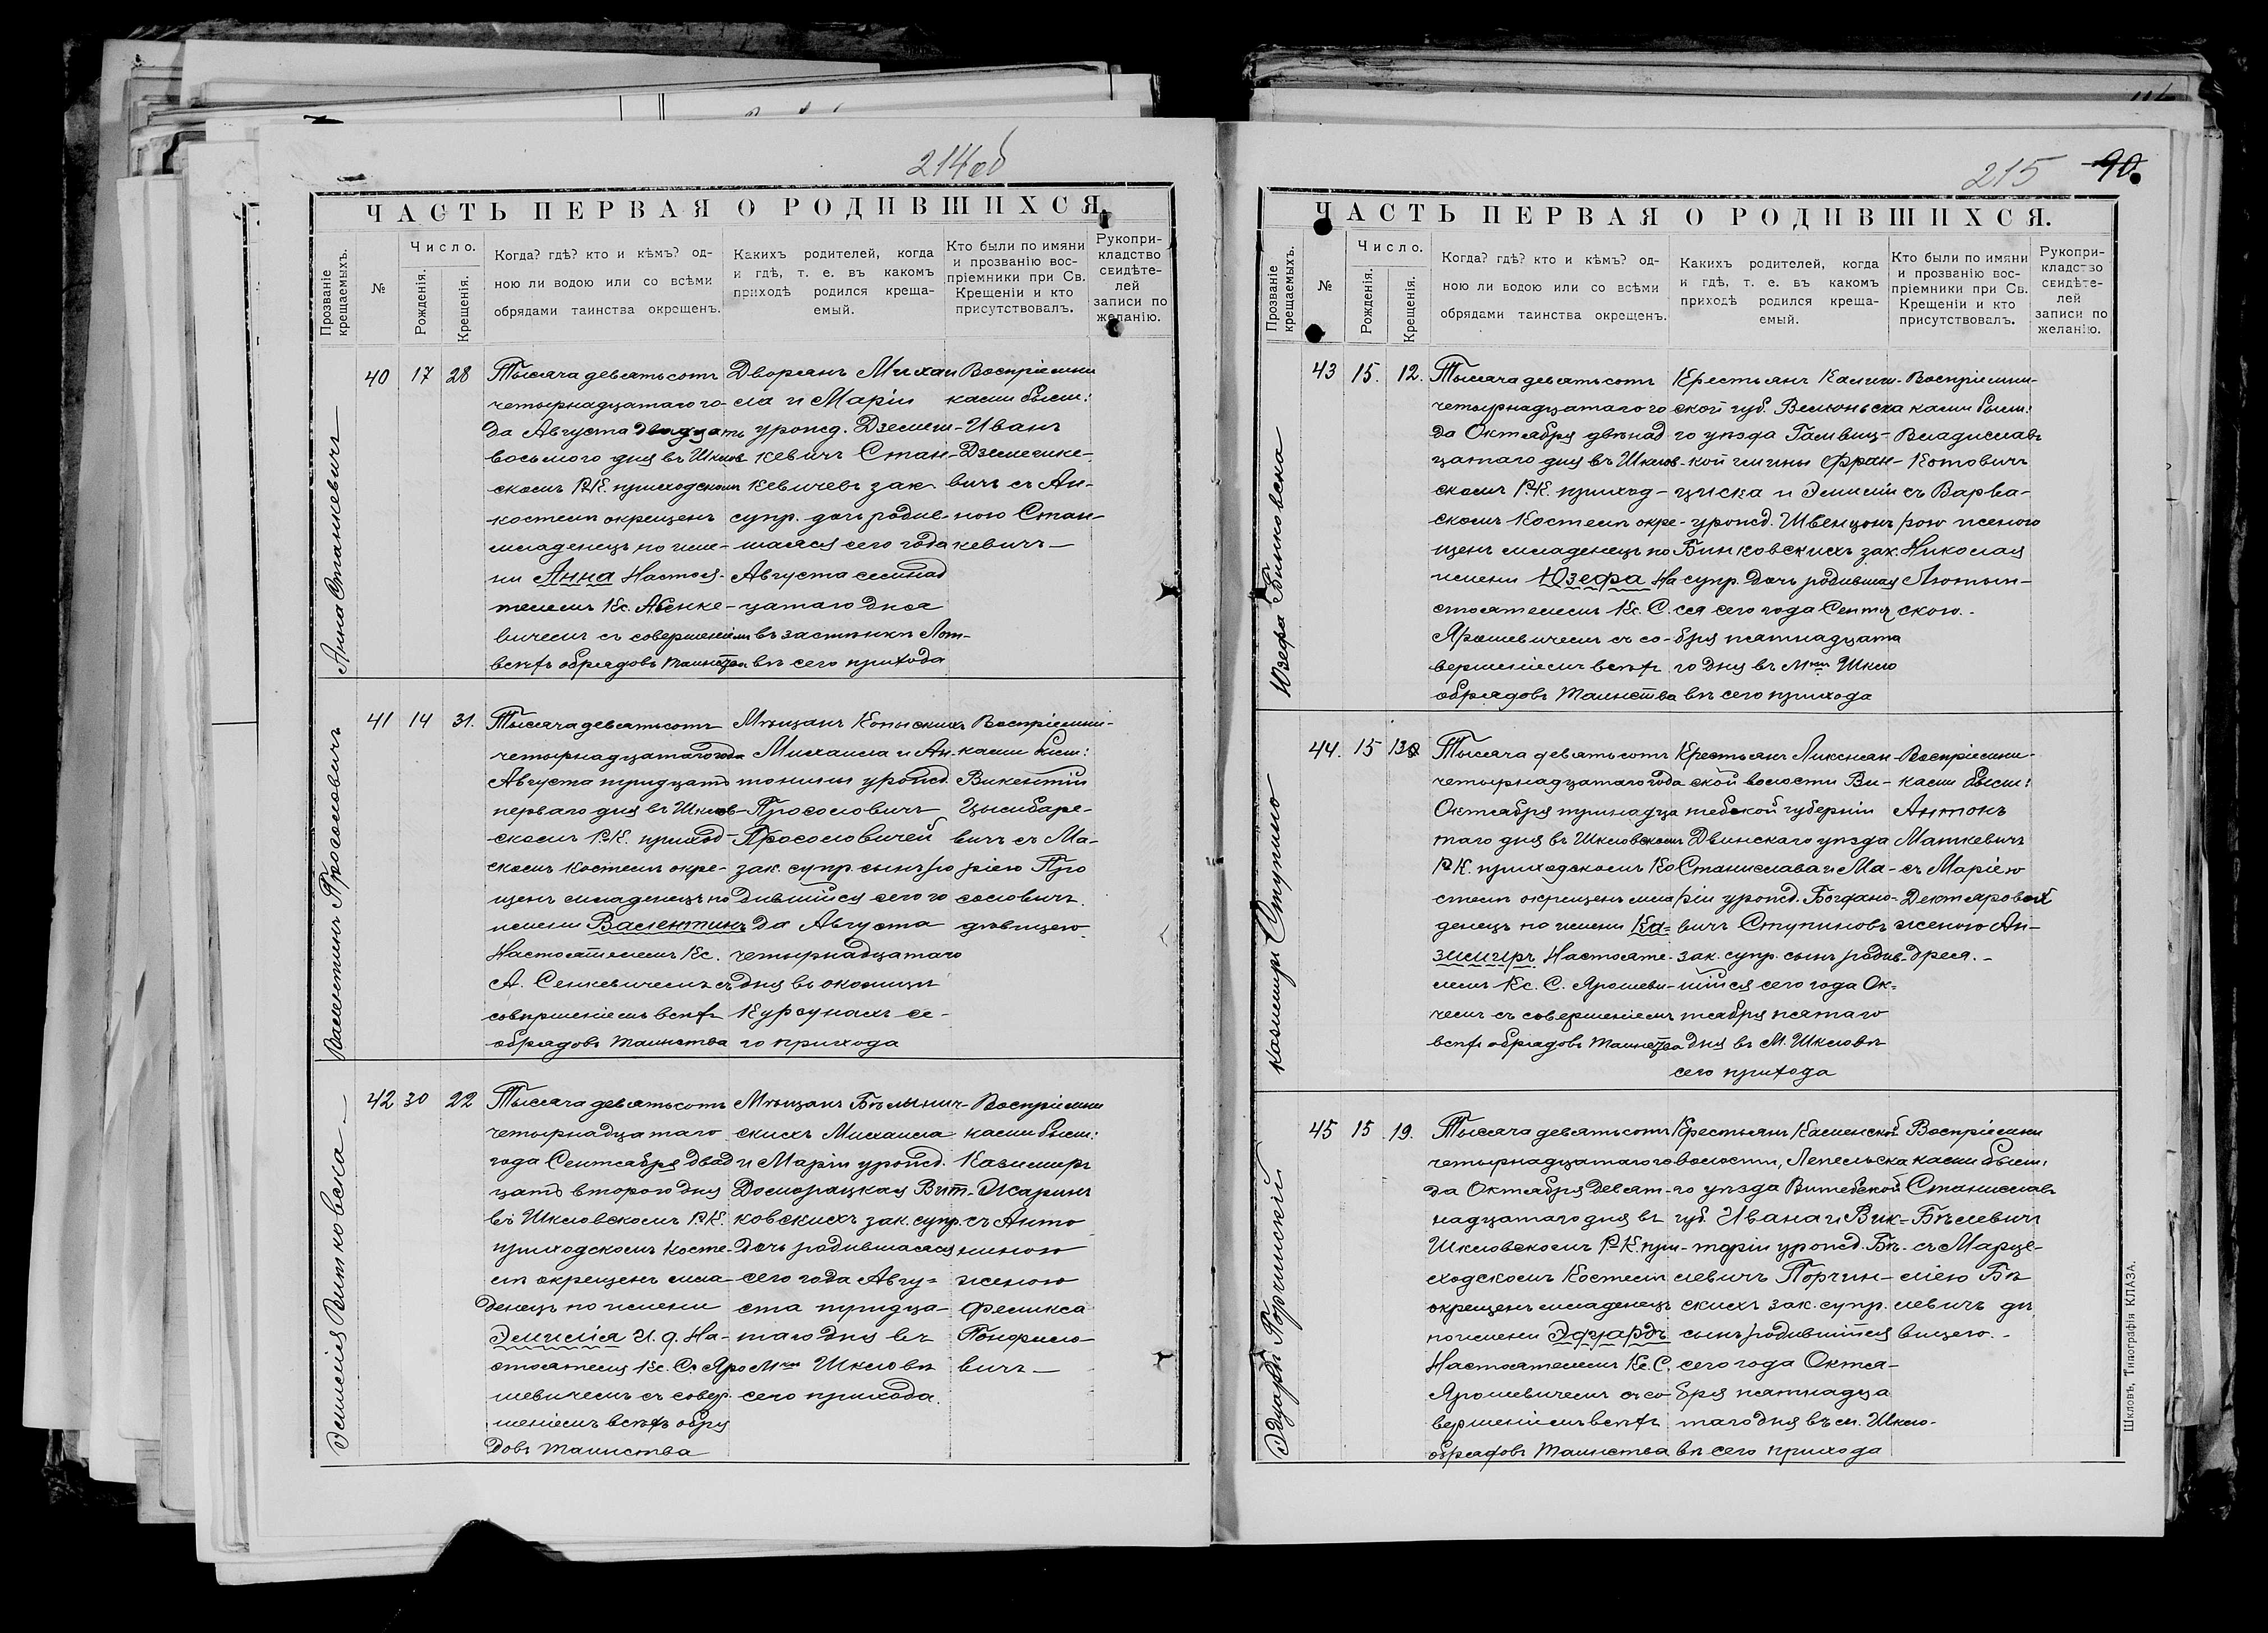 214об
ЧАСТЬ ПЕРВАЯ О РОДИВШИХСЯ.
Прозваніе крещаемыхъ.
№
Число.
Рожденія.
Крещенія.
Когда? гдѣ? кто и кѣмъ? од-
ною ли водою или со всѣми
обрядами таинства окрещенъ.
Какихъ родителей, когда
и гдѣ, т. е. въ какомъ
приходѣ родился креща-
емый.
Кто были по имяни
и прозванію вос-
пріемники при Св.
Крещеніи и кто
присутствовалъ.
Рукопри-
кладство
свидѣте-
лей
записи по
желанію.
Анна Станкевичъ
40
17
28
Тысяча девятьсотъ
четырнадцатаго го-
да Августа двадцать
восьмого дня въ Шклов
скомъ Р.К. приходскомъ
костелѣ окрещенъ
младенецъ по име-
ни Анна Настоя-
телемъ Кс. А. Сенке-
вичемъ съ совершеніемъ
всѣхъ обрядовъ таинства
Дворянъ Михаи
ла и Маріи
урожд. Дземеш-
кевичъ Стан-
кевичевъ зак.
супр. дочь родив-
шаяся сего года
Августа семнад
цатаго дня
въ застѣнкѣ Лот-
вѣ сего прихода
Воспріемни
ками были:
Иванъ
Дземешке-
вичъ съ Ан-
ною Стан-
кевичъ
Валентинъ Просоловичъ
41
14
31.
Тысяча девятьсотъ
четырнадцатаго года
Августа тридцать
перваго дня въ Шклов-
скомъ Р.К. приход-
скомъ костелѣ окре-
щенъ младенецъ по
имени Валентинъ
Настоятелемъ Кс.
А. Сенкевичемъ съ
совершеніемъ всѣхъ
обрядовъ таинства
Мѣщанъ Копыскихъ
Михаила и Ан-
тонины урожд.
Просоловичъ
Просоловичей
зак. супр. сынъ ро
дившійся сего го
да Августа
четырнадцатаго
дня въ околицѣ
Курсунахъ се-
го прихода
Воспріемни-
ками были:
Викентій
Цымбаре-
вичъ съ Ма-
ріею Про
соловичъ
дѣвицею
Эмилія Витковска
42
30
22
Тысяча девятьсотъ
четырнадцатаго
года Сентября двад
цать второго дня
въ Шкловскомъ Р.К.
приходскомъ косте-
лѣ окрещенъ мла-
денецъ по имени
Эмилія И. д. На-
стоятеля Кс. С. Яро
шевичемъ съ совер-
шеніемъ всѣхъ обря
довъ таинства
Мѣщанъ Бѣлынич-
скихъ Михаила
и Маріи урожд.
Доморацкая Вит-
ковскихъ зак. супр.
дочь родившаяся
сего года Авгу-
ста тридца-
таго дня въ
Мкѣ Шкловѣ
сего прихода.
Воспріемни
ками были:
Казимиръ
Жаринъ
съ Анто
ниною
женою
Феликса
вичъ
215
90
ЧАСТЬ ПЕРВАЯ О РОДИВШИХСЯ.
Прозваніе крещаемыхъ.
№
Число.
Рожденія.
Крещенія.
Когда? гдѣ? кто и кѣмъ? од-
ною ли водою или со всѣми
обрядами таинства окрещенъ.
Какихъ родителей, когда
и гдѣ, т. е. въ какомъ
приходѣ родился креща-
емый.
Кто были по имяни
и прозванію вос-
пріемники при Св.
Крещеніи и кто
присутствовалъ.
Рукопри-
кладство
свидѣте-
лей
записи по
желанію.
Юзефа Бинковска
43
15.
12.
Тысяча девятьсотъ
четырнадцатаго го
да Октября двѣнад
цатаго дня въ Шклов-
скомъ Р.К. приход-
скомъ Костелѣ окре-
щенъ младенецъ по
имени Юзефа На
стоятелемъ Кс. С.
Ярошевичемъ съ со-
вершеніемъ всѣхъ
обрядовъ таинства
Крестьянъ Калиш-
ской губ. Велюньска
го уѣзда Галвиц-
кой гмины Фран-
циска и Эмиліи
урожд. Швенцонъ
Бинковскихъ зак.
супр. дочь родивша
ся сего года Сентя
бря пятнадцата
го дня въ Мкѣ Шкло
вѣ сего прихода
Воспріемни-
ками были:
Владиславъ
Котовичъ
съ Варва-
рою женою
Николая
Лютын-
ского.
Казимиръ Ступино
44.
15
13
Тысяча девятьсотъ
четырнадцатаго года
Октября тринадца
таго дня въ Шкловскомъ
Р.К. приходскомъ Ко
стелѣ окрещенъ мла
денецъ по имени Ка-
зимиръ Настояте-
лемъ Кс. С. Ярошеви-
чемъ съ совершеніемъ
всѣхъ обрядовъ таинства
Крестьянъ Ликснян-
ской волости Ви-
тебской губерніи
Двинскаго уѣзда
Станислава и Ма-
ріи урожд. Богдано-
вичъ Ступиновъ
зак. супр. сынъ родив-
шійся сего года Ок-
тября пятаго
дня въ М. Шкловѣ
сего прихода
Воспріемни-
ками были:
Антонъ
Маткевичъ
съ Маріею
Дектяровой
женою Ан-
дрея.
Эдуардъ Порчинскій
45
15
19.
Тысяча девятьсотъ
четырнадцатаго го
да Октября девят-
надцатаго дня въ
Шкловскомъ Р.К. при-
ходскомъ Костелѣ
окрещенъ младенецъ
по имени Эдуардъ
Настоятелемъ Кс. С.
Ярошевичемъ съ со-
вершеніемъ всѣхъ
обрядовъ таинства
Крестьянъ Каменской
волости, Лепельска
го уѣзда Витебской
губ. Ивана и Вик-
торіи урожд. Бѣ-
левичъ Порчин-
скихъ зак. супр.
сынъ родившійся
сего года Октя-
бря пятнадца
таго дня въ м. Шкло-
вѣ сего прихода
Воспріемни
ками были:
Станиславъ
Бѣлевичъ
съ Марце-
ліею Бѣ
левичъ дѣ
вицею.
Шкловъ, Типографія КЛАЗА.